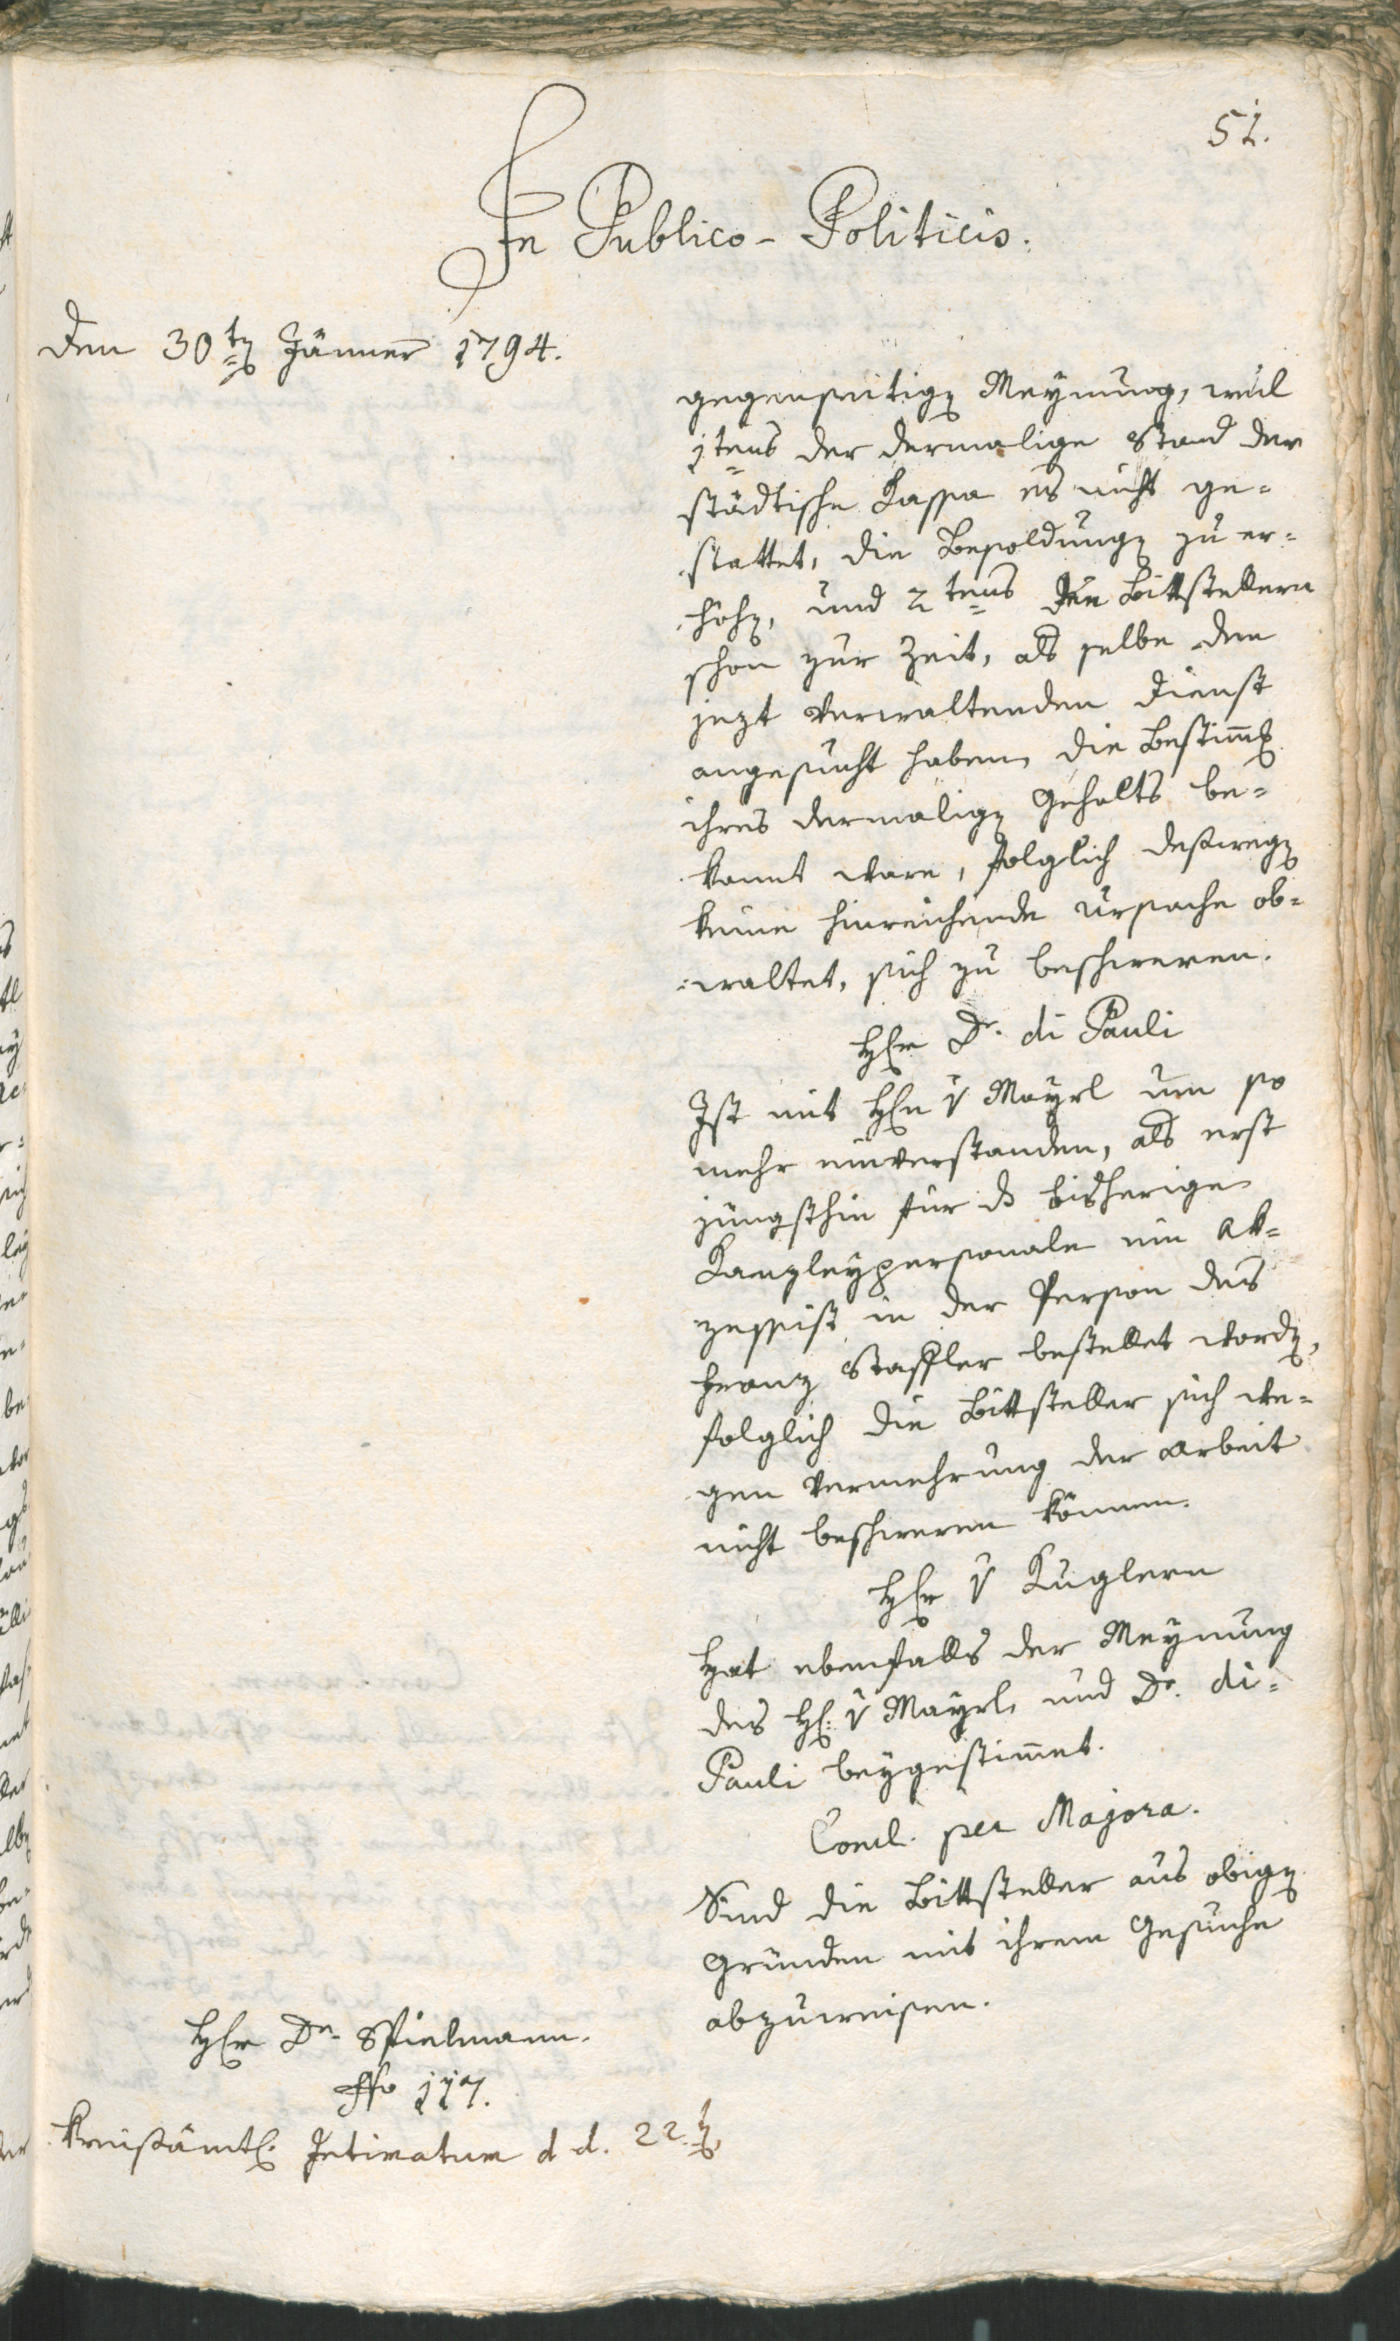 51.
In Publico-Politicis.
Den 30ten Jänner 1794.
gegenseitigen Meynung, weil
1tens der dermalige Stand der
städtische Kassa es nicht ge-
stattet, die Besoldungen zu er-
höhen, und 2tens den Bittstellern
schon zur Zeit, als selbe den
jezt verwaltenden Dienst
angesucht haben, die Bestimmung
ihres dermaligen Gehalts be-
kannt ware, folglich deßwegen
keine hinreichende Ursache ob-
waltet, sich zu beschweren.
Herr Dr. di Pauli
Ist mit Herrn v Mayrl um so
mehr einverstanden, als erst
jüngsthin für das bisherige
Kanzleypersonale ein Ak-
zessist in der Person des
Franz Staffler bestellet worden,
folglich die Bittsteller sich we-
gen Vermehrung der Arbeit
nicht beschweren können.
Herr v Kuglern
Hat ebenfalls der Meynung
des H: v Mayrl, und Dr. di-
Pauli beygestimmet.
Concl. per Majora.
Sind die Bittsteller aus obigen
Gründen mit ihrem Gesuche
abzuweisen.
Herr Dr. Spielmann.
No 117.
Kreisämtl. Intimatum d d. 22ten